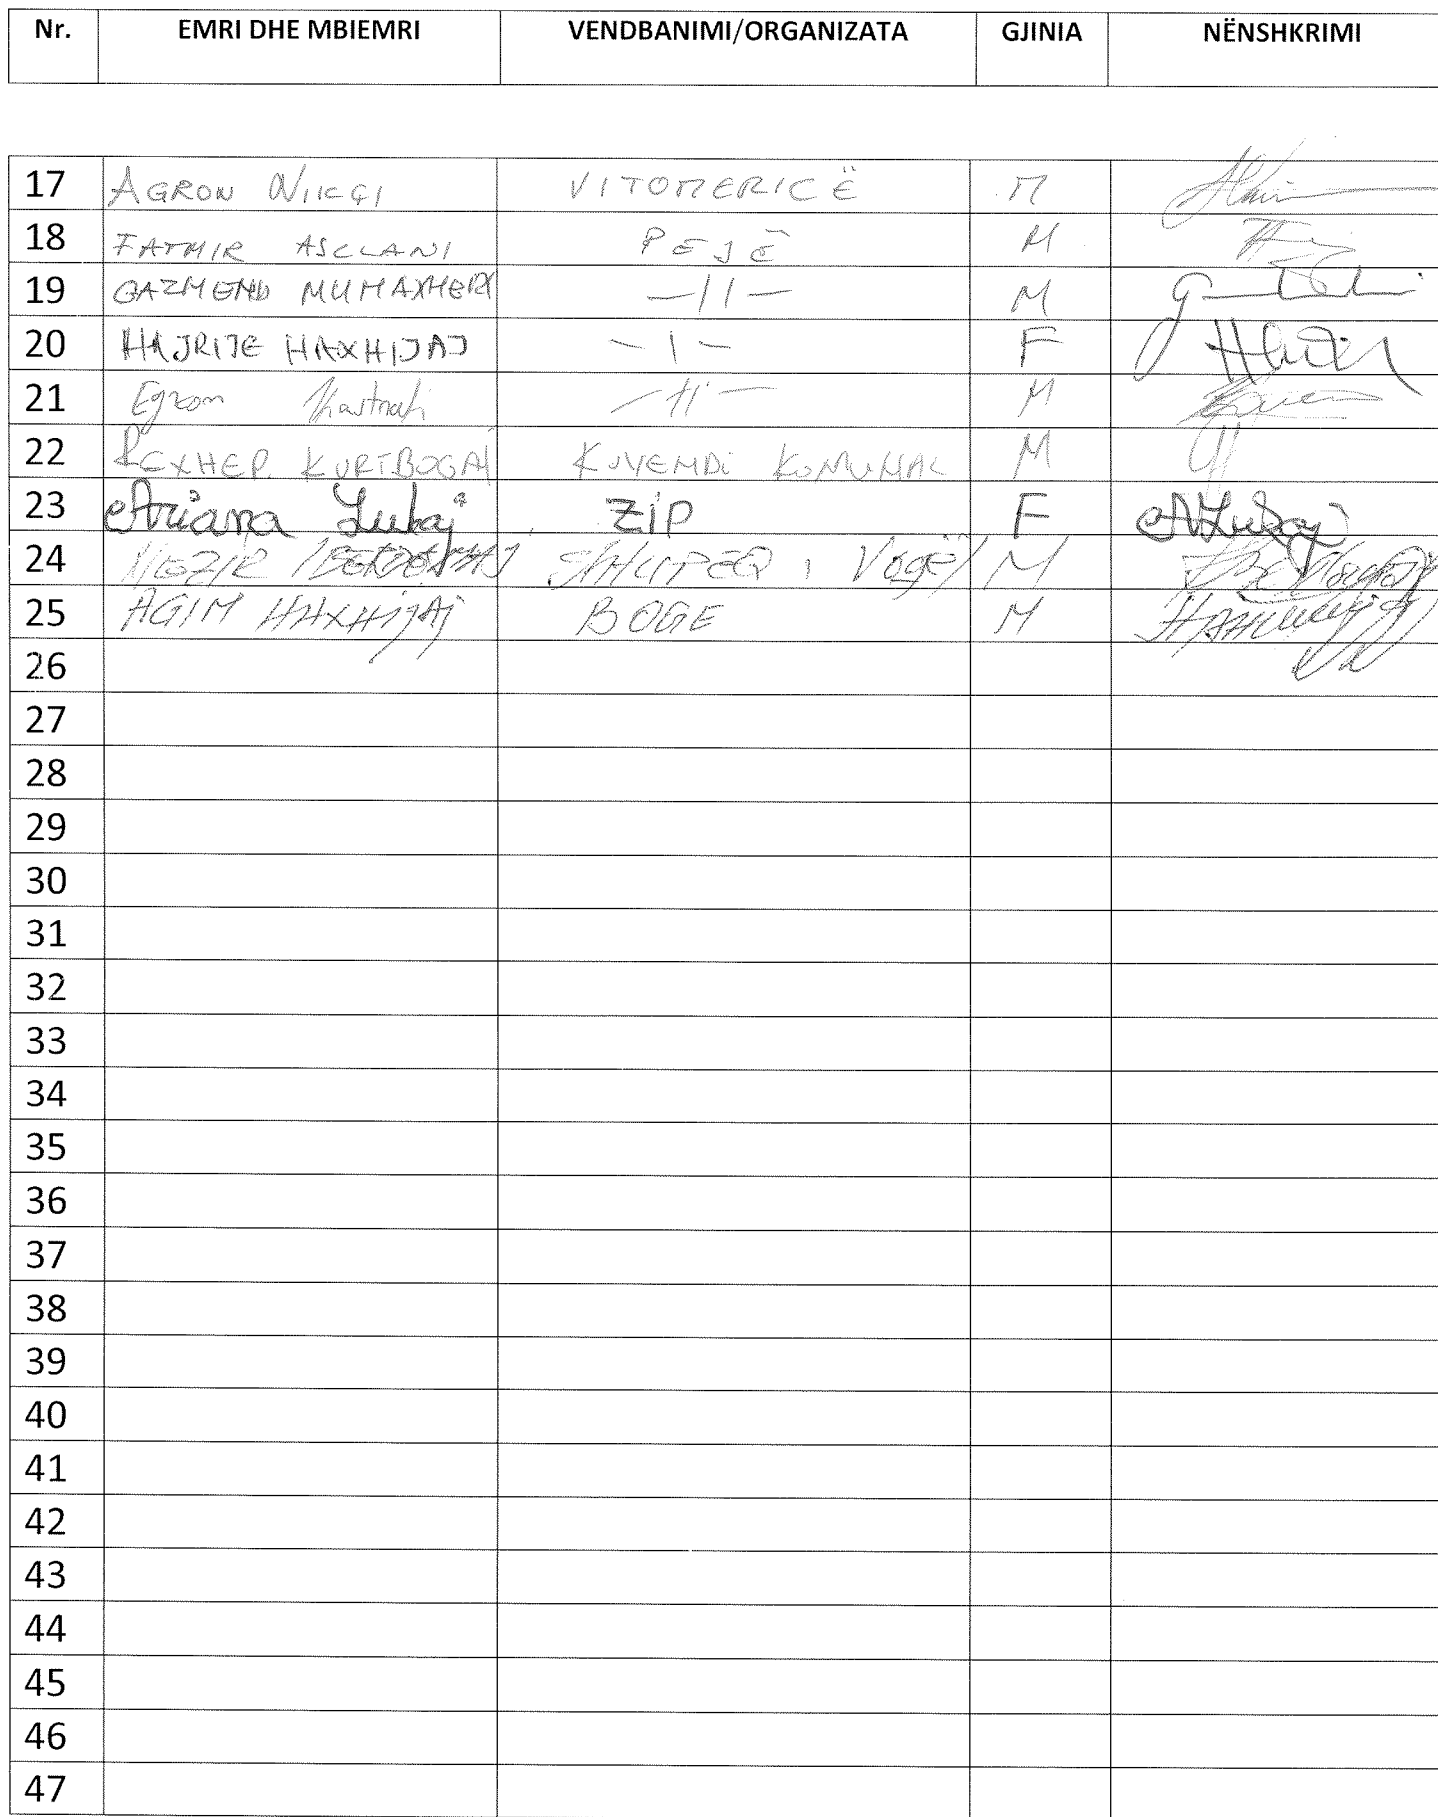 Nr. EMRI DHE MBIEMRI VENDBANIMI/ORGANIZATA GJINIA NËNSHKRIMI
17 AGRON NIKÇI VITOMERICË M
18 FATMIR ASLLANI PEJË M
19 GAZMEND MUHAXHERI —11— M
20 HAJRIJE HAXHIJAJ — 1 — F
21 Egzon Kastrati —11— M
22 REXHEP KURTBOGAJ KUVENDI KOMUNAL M
23 Ariana Lukaj ZIP F ALukaj
24 SHKUPEQ i Vogël M
25 AGIM HAXHIJAJ BOGE M
26
27
28
29
30
31
32
33
34
35
36
37
38
39
40
41
42
43
44
45
46
47